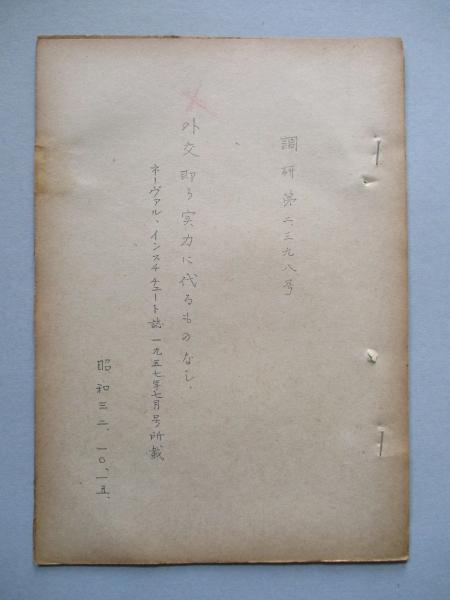 調研第二三九八号
外交即ち実力に代るものなし、
ネーヴァル、インスチチュート誌一九五七年七月号所載
昭和三二、一〇、一五、